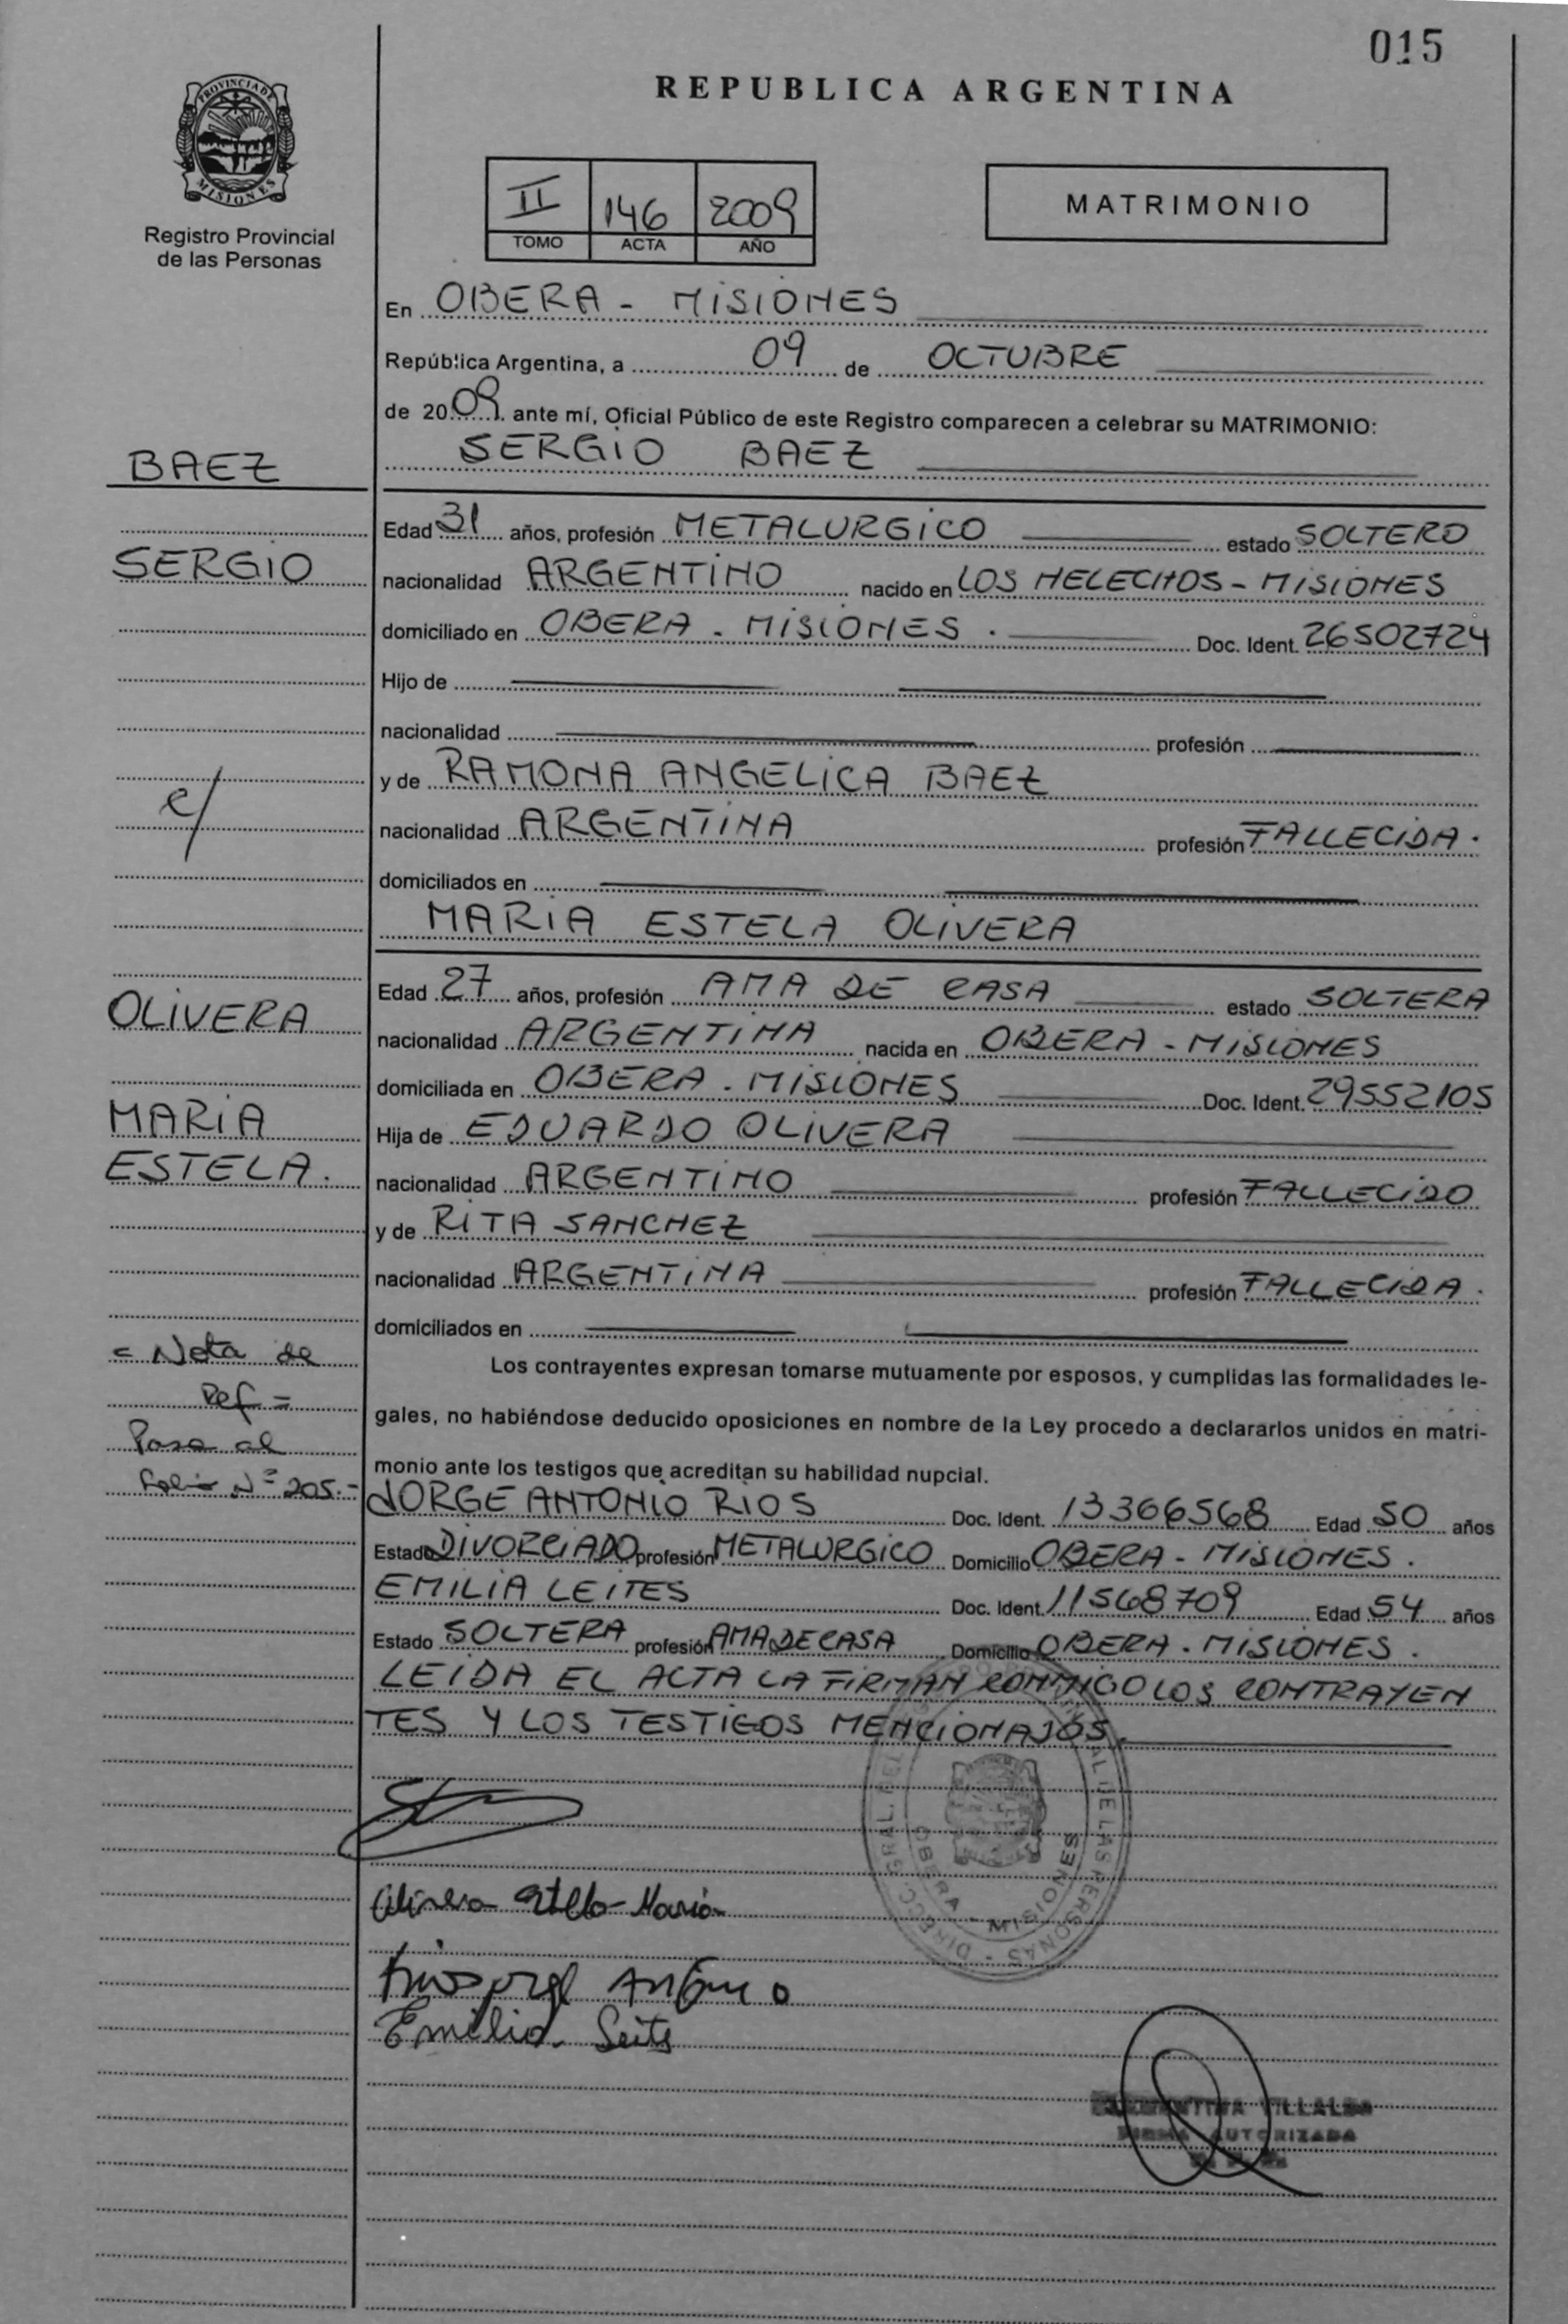 015
REPUBLICA ARGENTINA
PROVINCIA DE
MISIONES
Registro Provincial
de las Personas
II 146 2009
TOMO ACTA AÑO
MATRIMONIO
En OBERA - MISIONES
República Argentina, a 09 de OCTUBRE
de 2009 ante mí, Oficial Público de este Registro comparecen a celebrar su MATRIMONIO:
SERGIO BAEZ
BAEZ
Edad 31 años, profesión METALURGICO estado SOLTERO
SERGIO
nacionalidad ARGENTINO nacido en LOS HELECHOS - MISIONES
domiciliado en OBERA - MISIONES . Doc. Ident. 26502724
Hijo de
nacionalidad profesión
y de RAMONA ANGELICA BAEZ
c/
nacionalidad ARGENTINA profesión FALLECIDA .
domiciliados en
MARIA ESTELA OLIVERA
Edad 27 años, profesión AMA DE CASA estado SOLTERA
OLIVERA
nacionalidad ARGENTINA nacida en OBERA - MISIONES
domiciliada en OBERA - MISIONES Doc. Ident. 29552105
MARIA
Hija de EDUARDO OLIVERA
ESTELA .
nacionalidad ARGENTINO profesión FALLECIDO
y de RITA SANCHEZ
nacionalidad ARGENTINA profesión FALLECIDA .
domiciliados en
= Nota de
Ref =
Pasa al
Folio Nº 205.-
Los contrayentes expresan tomarse mutuamente por esposos, y cumplidas las formalidades le-
gales, no habiéndose deducido oposiciones en nombre de la Ley procedo a declararlos unidos en matri-
monio ante los testigos que acreditan su habilidad nupcial.
JORGE ANTONIO RIOS Doc. Ident. 13366568 Edad 50 años
Estado DIVORCIADO profesión METALURGICO Domicilio OBERA - MISIONES .
EMILIA LEITES Doc. Ident. 11568709 Edad 54 años
Estado SOLTERA profesión AMA DE CASA Domicilio OBERA - MISIONES .
LEIDA EL ACTA LA FIRMAN CONMIGO LOS CONTRAYEN
TES Y LOS TESTIGOS MENCIONADOS.
OBERA - MISIONES
Olivera Estela Maria
Rios Jorge Antonio
Emilia Leites
VILLALBA
FIRMA AUTORIZADA